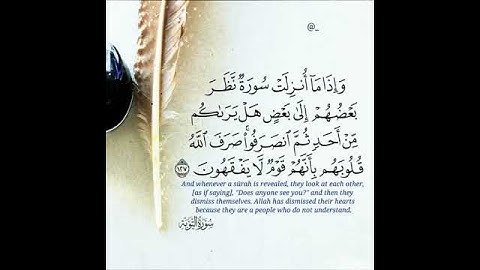 @_
وَإِذَا مَا أُنزِلَتْ سُورَةٌ نَّظَرَ
بَعْضُهُمْ إِلَىٰ بَعْضٍ هَلْ يَرَىٰكُم
مِّنْ أَحَدٍ ثُمَّ ٱنصَرَفُوا۟ ۚ صَرَفَ ٱللَّهُ
قُلُوبَهُم بِأَنَّهُمْ قَوْمٌ لَّا يَفْقَهُونَ ١٢٧
And whenever a sūrah is revealed, they look at each other,
[as if saying], "Does anyone see you?" and then they
dismiss themselves. Allah has dismissed their hearts
because they are a people who do not understand.
سُورَةُ التَّوْبَةِ